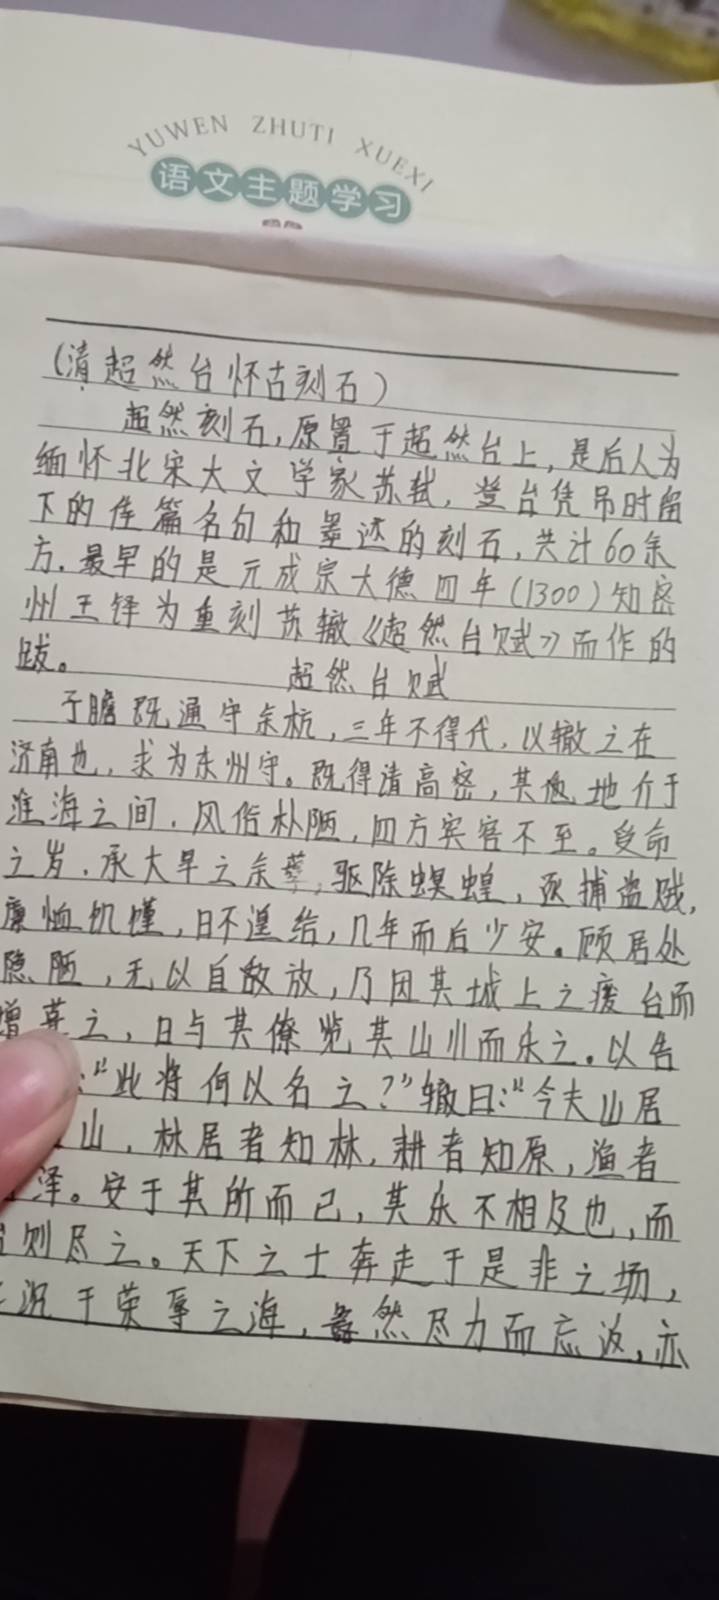 YUWEN ZHUTI XUEXI
语文主题学习
(清超然台怀古刻石)
超然刻石,原置于超然台上,是后人为
缅怀北宋大文学家苏轼,登台凭吊时留
下的佳篇名句和墨迹的刻石,共计60余
方.最早的是元成宗大德四年(1300)知密
州王铎为重刻苏辙《超然台赋》而作的
跋。
超然台赋
子瞻既通守余杭,三年不得代,以辙之在
济南也,求为东州守。既得清高密,其地介于
淮海之间,风俗朴陋,四方宾客不至。受命
之岁,承大旱之余孽,驱除螟蝗,逐捕盗贼,
廪恤饥馑,日不遑给,几年而后少安。顾居处
隐陋,无以自放,乃因其城上之废台而
增葺之,日与其僚览其山川而乐之。以告
:"此将何以名之?"辙曰:"今夫山居
山,林居者知林,耕者知原,渔者
泽。安于其所而已,其乐不相及也,而
则尽之。天下之士奔走于是非之场,
沉于荣辱之海,嚣然尽力而忘返,亦